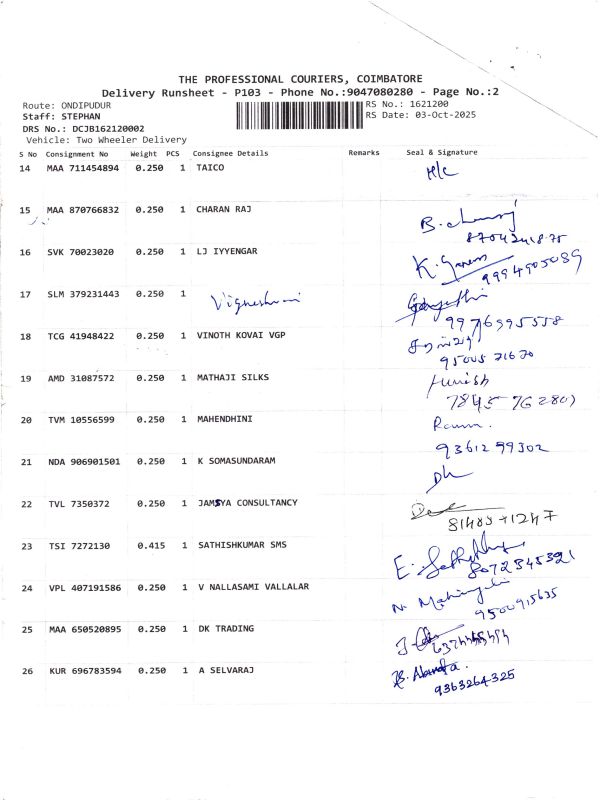 THE PROFESSIONAL COURIERS, COIMBATORE
Delivery Runsheet - P103 - Phone No.:9047080280 - Page No.:2
Route: ONDIPUDUR
RS No.: 1621200
Staff: STEPHAN
RS Date: 03-Oct-2025
DRS No.: DCJB162120002
Vehicle: Two Wheeler Delivery
S No Consignment No Weight PCS Consignee Details Remarks Seal & Signature
14 MAA 711454894 0.250 1 TAICO
15 MAA 870766832 0.250 1 CHARAN RAJ
16 SVK 70023020 0.250 1 LJ IYYENGAR
K.
9994905089
17 SLM 379231443 0.250 1
9976995558
18 TCG 41948422 0.250 1 VINOTH KOVAI VGP
19 AMD 31087572 0.250 1 MATHAJI SILKS
20 TVM 10556599 0.250 1 MAHENDHINI
9361299302
21 NDA 906901501 0.250 1 K SOMASUNDARAM
22 TVL 7350372 0.250 1 CONSULTANCY
23 TSI 7272130 0.415 1 SATHISHKUMAR SMS
E.
8072345321
24 VPL 407191586 0.250 1 V NALLASAMI VALLALAR
9500915635
25 MAA 650520895 0.250 1 DK TRADING
26 KUR 696783594 0.250 1 A SELVARAJ
9363264325